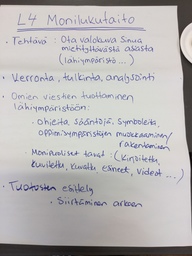 L4 Monilukutaito
• Tehtävä : Ota valokuva sinua
mietityttävästä asiasta
(lähiympäristö...)
• Vertonta, tulkinta, analysointi
• Omien viestien tuottaminen
lähiympäristöön:
• Ohjeita, sääntöjä, symboleita,
oppimisympäristöjen muokkaaminen/
rakentaminen
• Monipuoliset tavat : (kirjoitettu,
kuviteltu, kuvattu, esineet, videot ...)
• Tuotosten esittely
• Siirtäminen arkeen